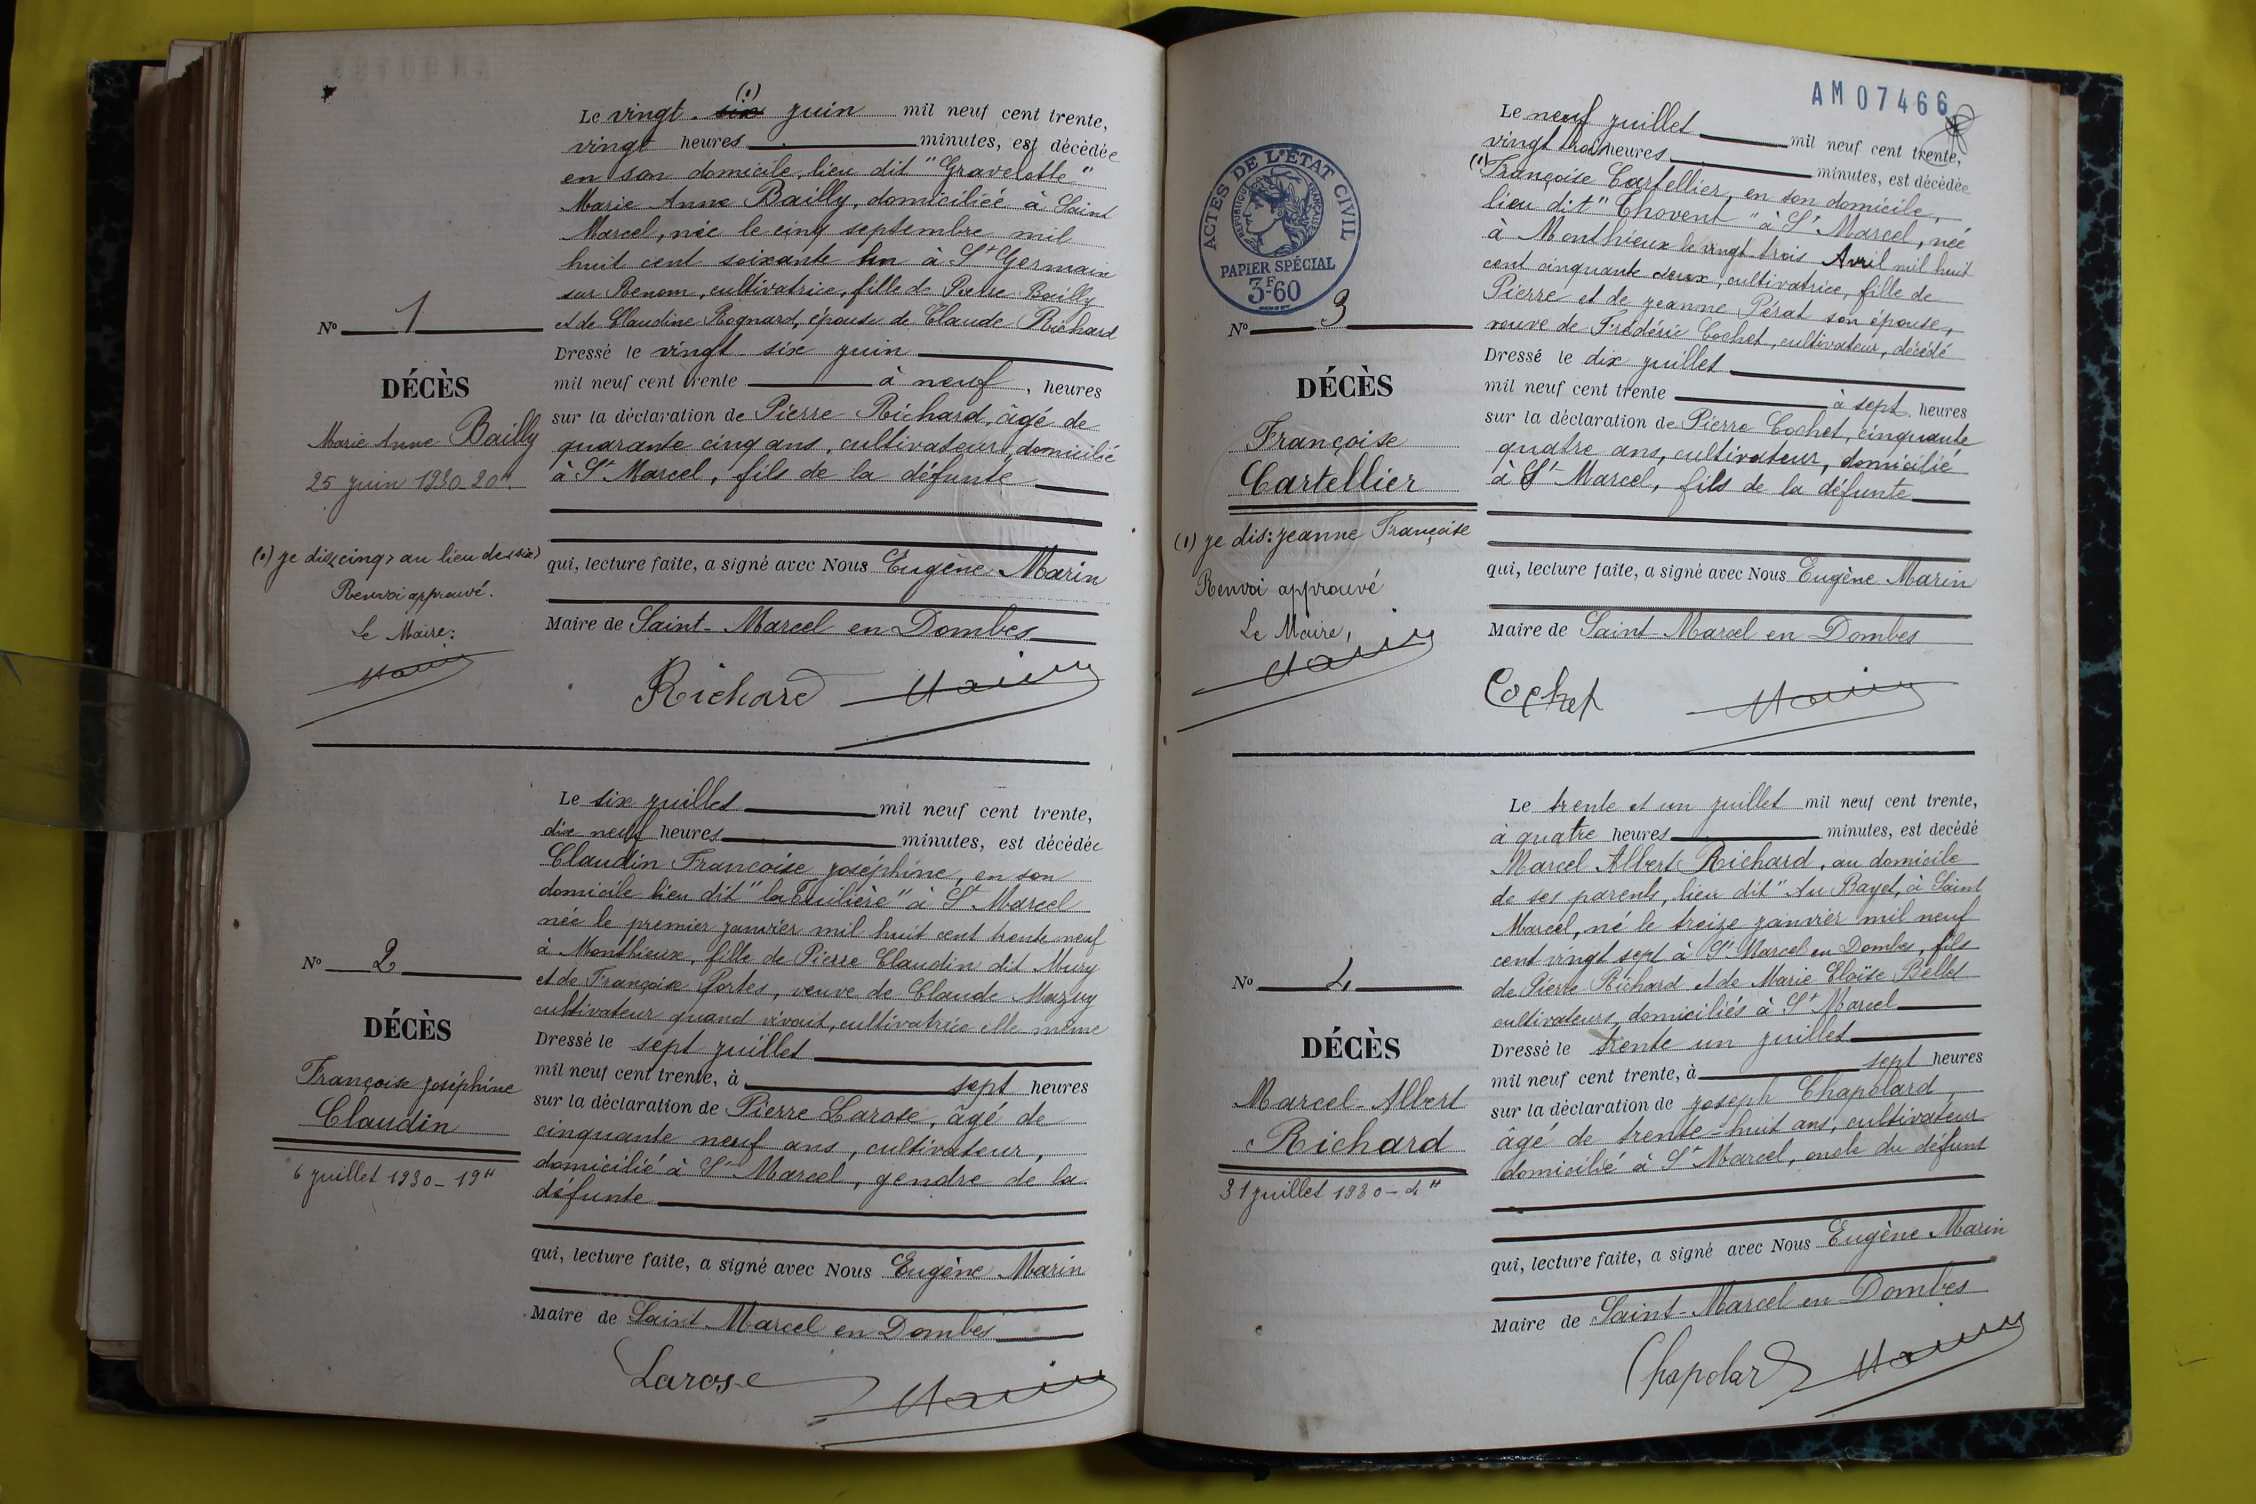 (1)
Le vingt six juin mil neuf cent trente,
vingt heures minutes, est décédée
en son domicile, lieu dit "Gravelotte"
Marie Anne Bailly, domiciliée à Saint
Marcel, née le cinq septembre mil
huit cent soixante un à St Germain
sur Renom, cultivatrice, fille de Pierre Bailly
et de Claudine Rognard, épouse de Claude Richard
Dressé le vingt six juin
mil neuf cent trente à neuf, heures
sur la déclaration de Pierre Richard, âgé de
quarante cinq ans, cultivateur, domicilié
à St Marcel, fils de la défunte
qui, lecture faite, a signé avec Nous Eugène Marin
Maire de Saint-Marcel en Dombes
Richard Marin
No 1
DÉCÈS
Marie Anne Bailly
25 juin 1930 20H
(1) je dis «cinq» au lieu de «six»
Renvoi approuvé.
Le Maire:
Marin
Le six juillet mil neuf cent trente,
dix neuf heures minutes, est décédée
Claudin Francoise joséphine, en son
domicile lieu dit "la Tuilière" à St Marcel
née le premier janvier mil huit cent trente neuf
à Monthieux, fille de Pierre Claudin dit Mury
et de Françoise Portes, veuve de Claude Mazuy
cultivateur quand vivait, cultivatrice elle même
Dressé le sept juillet
mil neuf cent trente, à sept heures
sur la déclaration de Pierre Larose, âgé de
cinquante neuf ans, cultivateur,
domicilié à St Marcel, gendre de la
défunte
qui, lecture faite, a signé avec Nous Eugène Marin
Maire de Saint Marcel en Dombes
Larose Marin
No 2
DÉCÈS
Françoise joséphine
Claudin
6 juillet 1930 - 19H
AM07466
ACTES DE L'ÉTAT CIVIL
RÉPUBLIQUE FRANÇAISE
PAPIER SPÉCIAL
3F60
Le neuf juillet mil neuf cent trente,
vingt trois heures minutes, est décédée
(1) Françoise Cartellier, en son domicile,
lieu dit "Chovent" à St Marcel, née
à Monthieux le vingt trois Avril mil huit
cent cinquante deux, cultivatrice, fille de
Pierre et de jeanne Pérat son épouse,
veuve de Frédéric Cochet, cultivateur, décédé
Dressé le dix juillet
mil neuf cent trente à sept heures
sur la déclaration de Pierre Cochet, cinquante
quatre ans, cultivateur, domicilié
à St Marcel, fils de la défunte
qui, lecture faite, a signé avec Nous Eugène Marin
Maire de Saint-Marcel en Dombes
Cochet Marin
No 3
DÉCÈS
Françoise
Cartellier
(1) je dis: jeanne Françoise
Renvoi approuvé
Le Maire,
Marin
Le trente et un juillet mil neuf cent trente,
à quatre heures minutes, est decédé
Marcel Albert Richard, au domicile
de ses parents, lieu dit "Au Bayet, à Saint
Marcel, né le treize janvier mil neuf
cent vingt sept à St Marcel en Dombes, fils
de Pierre Richard et de Marie Eloïse Bellet
cultivateurs domiciliés à St Marcel
Dressé le trente un juillet
mil neuf cent trente, à sept heures
sur la déclaration de joseph Chapolard
âgé de trente-huit ans, cultivateur
domicilié à St Marcel, oncle du défunt
qui, lecture faite, a signé avec Nous Eugène Marin
Maire de Saint-Marcel en Dombes
Chapolard Marin
No 4
DÉCÈS
Marcel-Albert
Richard
31 juillet 1930 - 4H